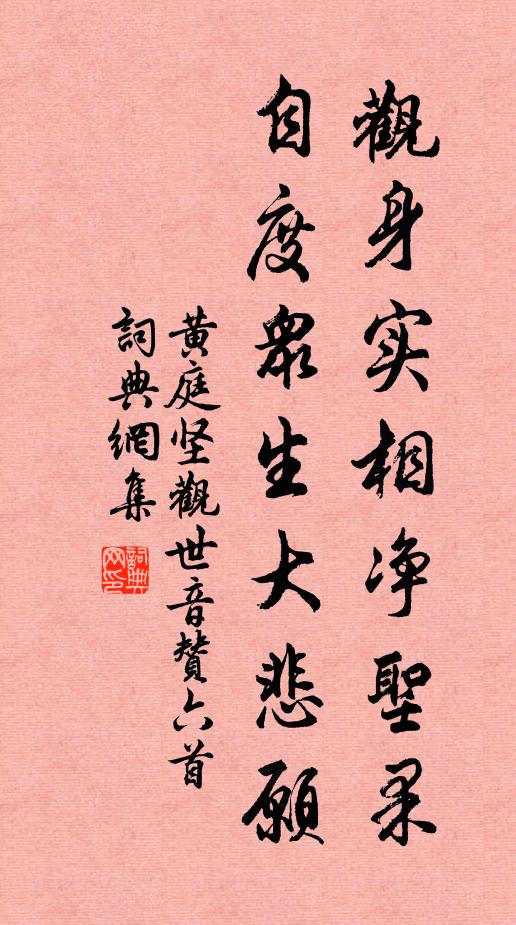 觀身实相净聖果
自度眾生大悲願
黄庭坚觀世音賛六首
詞典網集
詞典网印